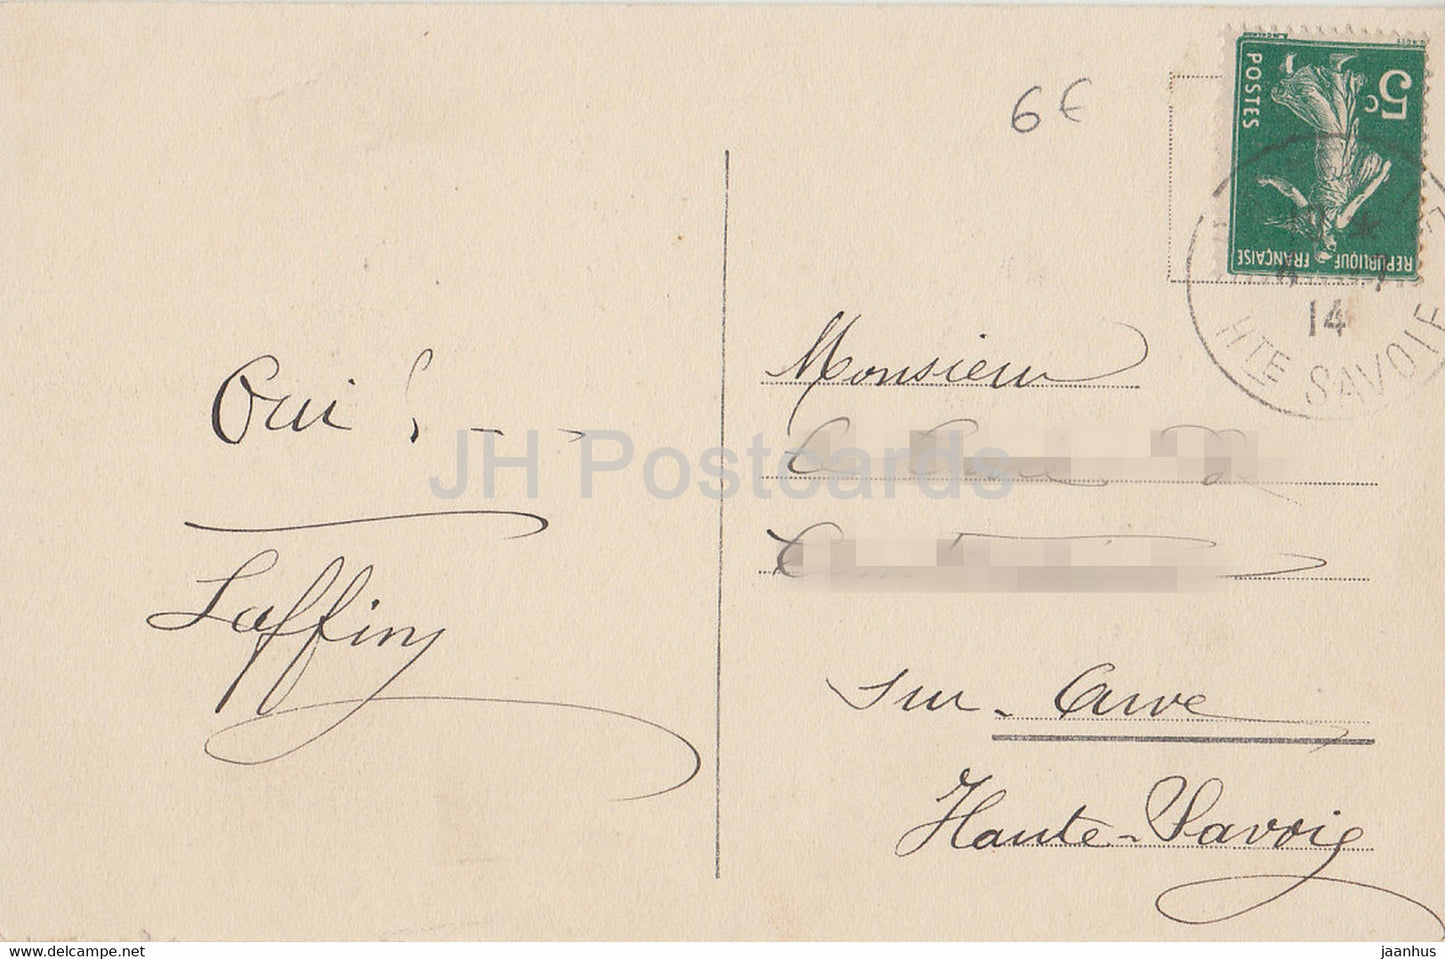 6€
5c
POSTES
REPUBLIQUE FRANÇAISE
14
HTE SAVOIE
Oui! - -
Laffiny
Monsieur
sur-Arve
Haute-Savoie
JH Postcards
www.delcampe.net
jaanhus